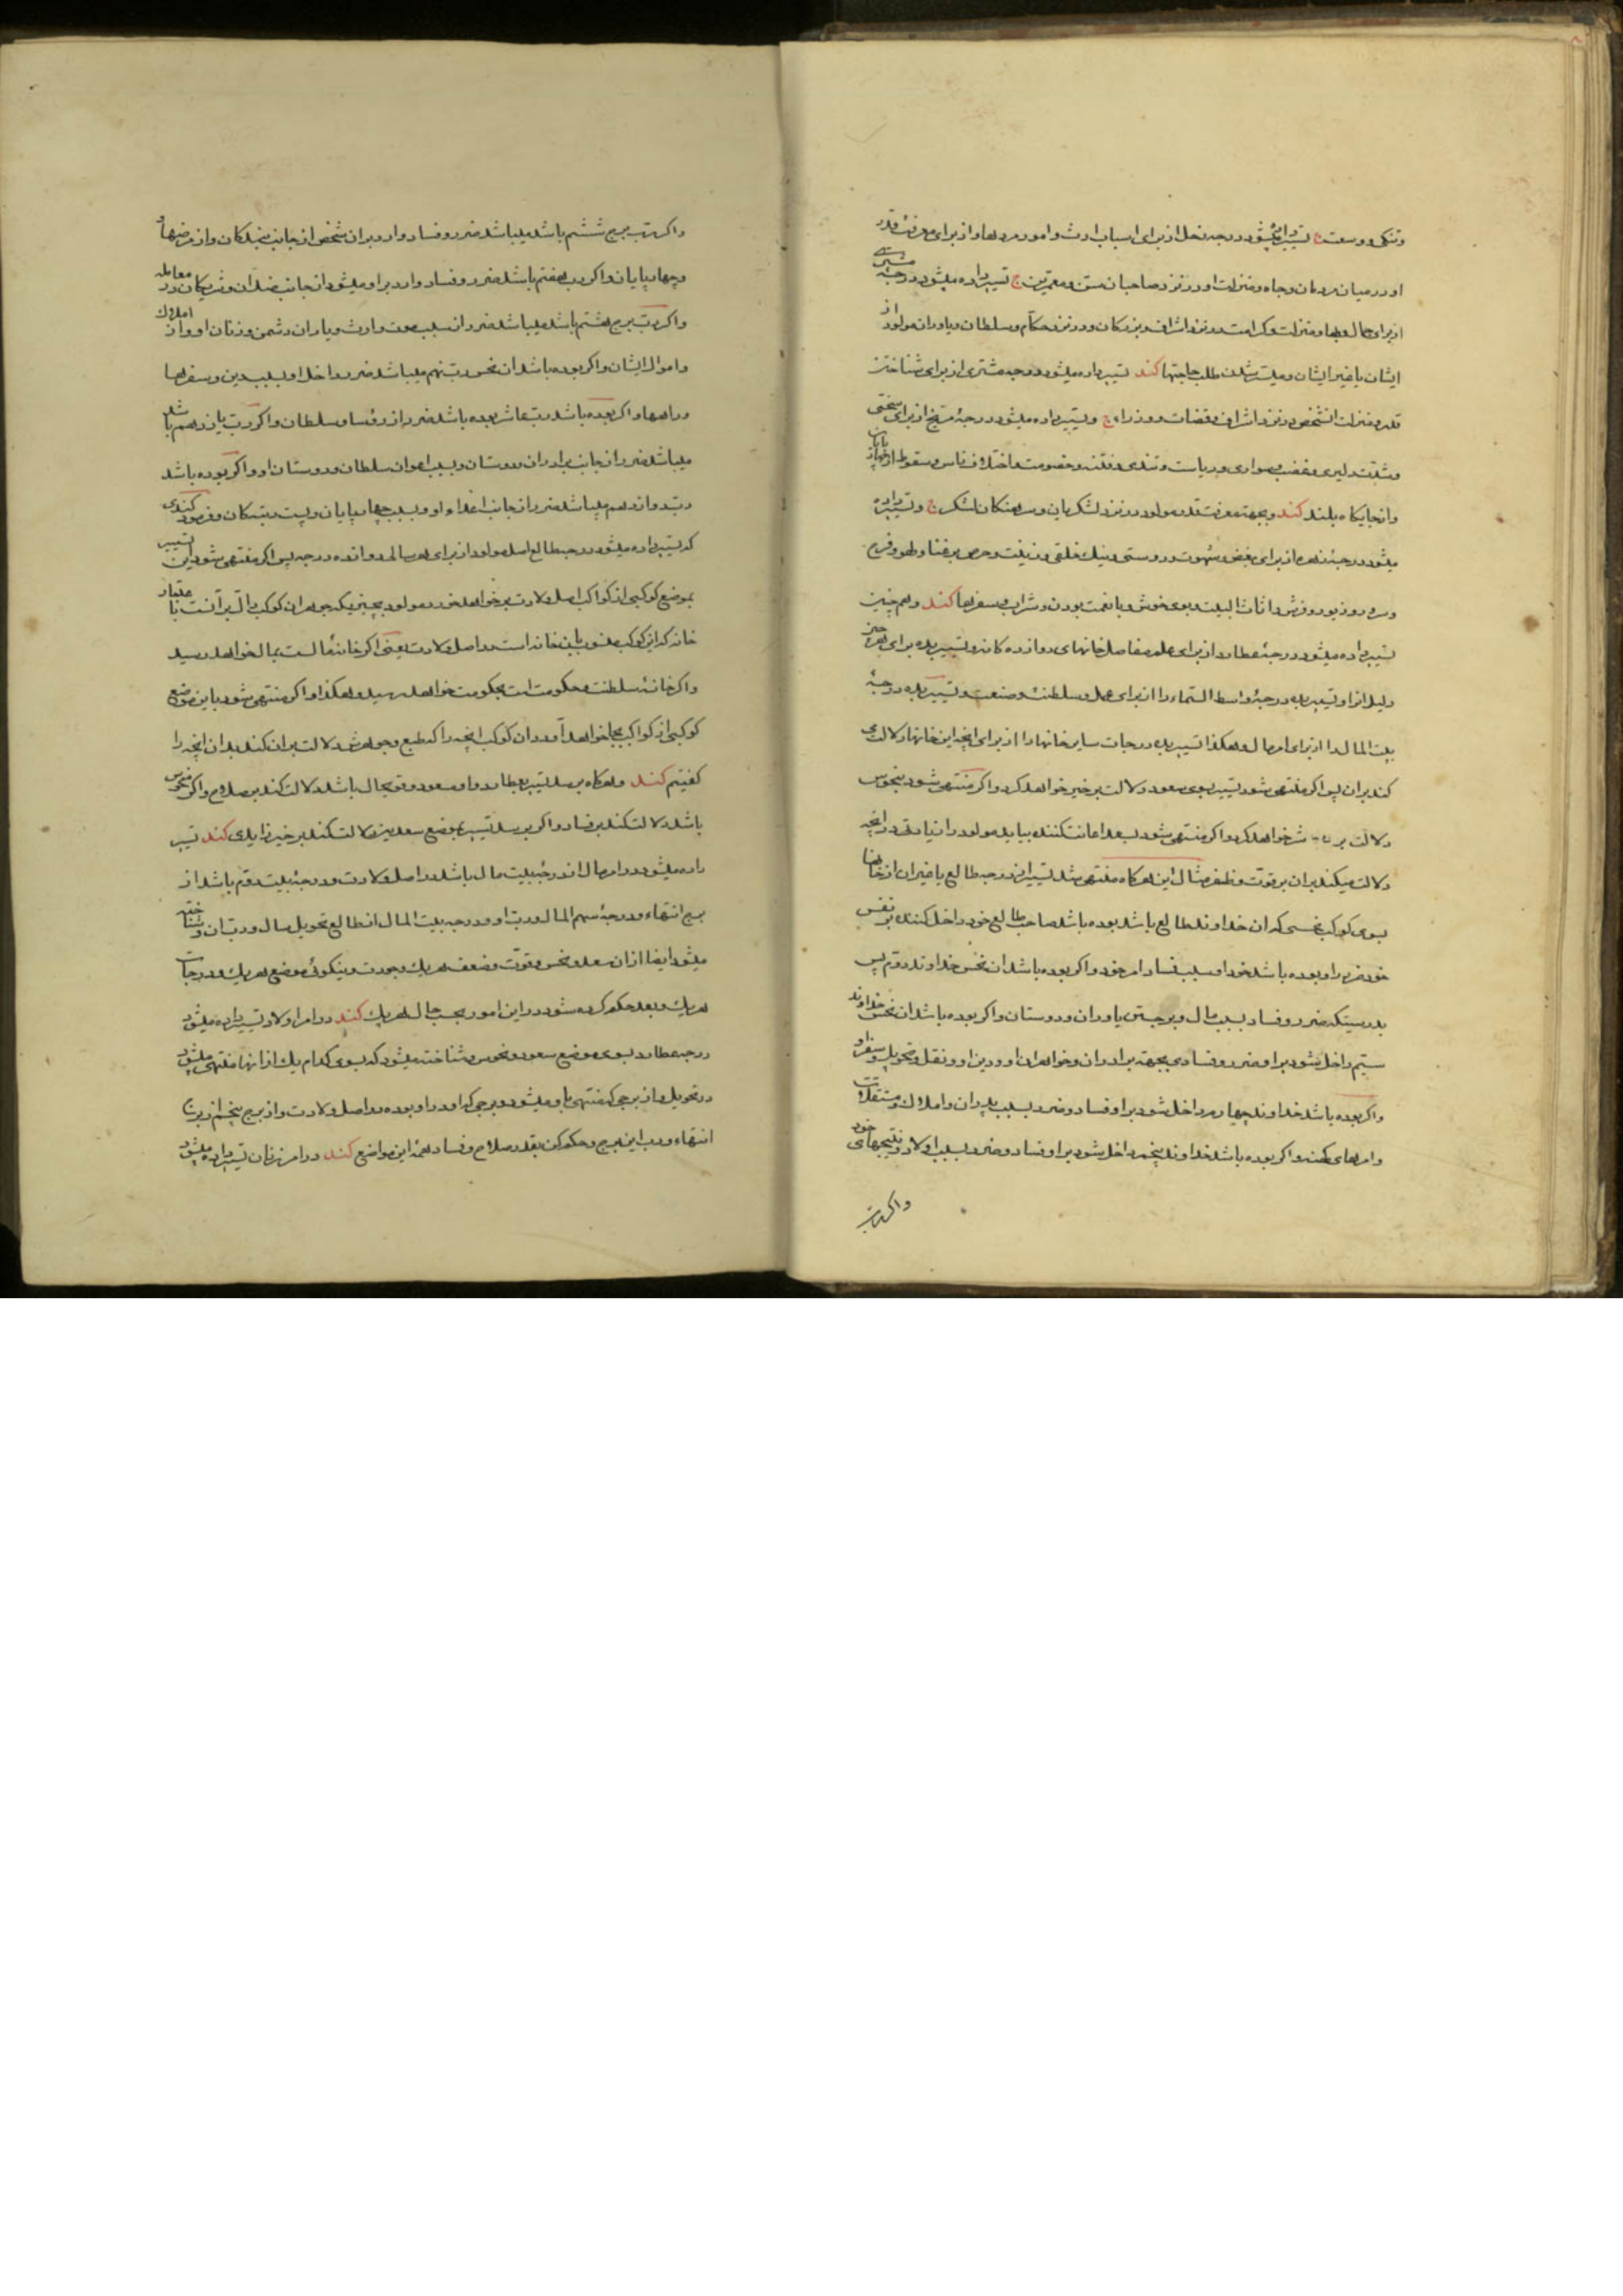 وتنکی و وسعت ح تسییر داده میشود درجه زحل از برای اسباب ارث و امور مردها و از برای معرفت قدر
او در میان مردمان و جاه و منزلت او در نزد صاحبان سن و معمرین ح تسییر داده میشود درجهٔ شمس
از برای حال و بها و منزلت و کرامت در نزد اشراف و بزرکان و در نزد حکام و سلطان و یاوران مولود از
ایشان یا غیر ایشان و میسر شدن طلب حاجتها کند تسییر داده میشود درجه مشتری از برای شناختن
قدر و منزلت انشخص در نزد اشراف و قضات و وزراء ح و تسییر داده میشود درجهٔ مریخ از برای سختی
و شدت دلیری و غضب و سواری و ریاست و تندی و فتنه و خصومت و اختلاف ناس و سقوط از چهارپایان
و از جایکاه بلند کند و بجهة معرفت قدر مولود در نزد لشکریان و سرهنکان لشکر ح و تسییر داده
میشود درجهٔ زهره از برای بغض و شهوت و دوستی و نیک خلقی و زینت و حرص بر غنا و لهو و فرح
و سرور و زیور و فرش و اثاث البیت و بوی خوش و با نعمت بودن و شراب و سفرها کند و هم چنین
تسییر داده میشود درجهٔ عطارد از برای علم و مفاصل خانهای دوازده کانه و تسییر بده برای هر چیز
دلیل انرا و تسییر بده درجهٔ واسط السماء را از برای عمل و سلطنت و صنعت و تسییر بده درجهٔ
بیت المال را از برای امر مال و هکذا تسییر بده درجات سایر خانها را از برای انچه این خانها دلالت
کند بران پس اکر منتهی شود تسییر بسوی سعود دلالت بر خیر خواهد کرد و اکر منتهی شود بنحوس
دلالت بر شر خواهد کرد و اکر منتهی شود بسعد اعانت کننده بیابد مولود را زیادتی در انچه
دلالت میکند بران بر قوت و ظفر مثال این هرکاه منتهی شد تسییر از درجه طالع یا غیر ان از خانها
بسوی کوکب نحسی که ان خداوند طالع باشد بوده باشد صاحب طالع خود داخل کننده بر نفس
خود ضرر را و بوده باشد خود او سبب فساد امر خود و اکر بوده باشد ان نحس خداوند دوم پس
بدرستیکه ضرر و فساد بسبب مال و برجستن یاوران و دوستان و اکر بوده باشد ان نحس خداوند
سیم داخل شود بر او ضرر و فسادی بجهة برادران و خواهران او و دین او و نقل و تحویل و سفر او
و اکر بوده باشد خداوند چهارم داخل شود بر او فساد و ضرر بسبب پدران و املاک و مستقلات
و امرهای کهنه و اکر بوده باشد خداوند پنجم داخل شود بر او فساد و ضرر بسبب اولاد و نتیجهای خود
و اکر رب
و اکر رب برج ششم باشد میباشد ضرر و فساد وارد بران شخص از جانب بندکان و از مرضها و
و چهارپایان و اکر رب هفتم باشد ضرر و فساد وارد بر او میشود از جانب ضدان و شریکان در معامله
و اکر رب برج هشتم باشد میباشد ضرر از سبب موت و ارث و یاران دشمن و زنان او و از املاک
و اموال ایشان و اکر بوده باشد ان نحس رب نهم میباشد ضرر داخل او بسبب دین و سفرها
و راهها و اکر بوده باشد رب عاشر بوده باشد ضرر از رؤسا و سلطان و اکر رب یازدهم باشد
میباشد ضرر از جانب برادران و دوستان و بسبب اعوان سلطان و دوستان او و اکر بوده باشد
رب دوازدهم میباشد ضرر از جانب اعداء او و بسبب چهارپایان و پست رتبکان و فرمود کندی
که تسییر داده میشود درجه طالع اصل مولود از برای هر سالی دوازده درجه پس اکر منتهی شود این تسییر
بموضع کوکبی از کواکب اصل ولادت بر خواهد خورد مولود بچیزیکه جوهر ان کوکب دال بر آنست باعتبار
خانه که این کوکب منسوب بان خانه است در اصل ولادت یعنی اکر خانهٔ مالست بمال خواهد رسید
و اکر خانهٔ سلطنت و حکومت است بحکومت خواهد رسید و هکذا و اکر منتهی شود باین موضع
کوکبی از کواکب بجا خواهد آورد ان کوکب انچه را که طبع و جوهرش دلالت بران کند بدان انچه را
کفتیم کند و هرکاه برسد تسییر بعطارد و او مسعود و قوی حال باشد دلالت کند بر صلاح و اکر منحوس
باشد دلالت کند بر فساد و اکر برسد تسییر بموضع سعدین دلالت کند بر خیر زایدی کند تسییر
داده میشود در امر مال از درجهٔ بیت مال باشد در اصل ولادت و درجهٔ بیت دوم باشد از
برج انتهاء و درجهٔ سهم المال و رب او و درجه بیت المال از طالع تحویل سال و رب ان و شناخته
میشود ایضا از ان سعد و نحس و قوت و ضعف هر یک و جودت و نیکوئی موضع هر یک و درجات
هر یک و بعد حکم کرده شود در این امور بحسب حال هر یک کند در امر اولاد تسییر داده میشود
درجه عطارد بسوی موضع سعود و نحوس و شناخته میشود که بسوی کدام یک از انها منتهی میشود
در تحویل و از برجی که منتهی باو میشود و برجی که او در او بوده در اصل ولادت و از برج پنجم از برج
انتهاء و رب این برج و حکم کن بقدر صلاح و فساد همهٔ این مواضع کند در امر زنان تسییر داده میشود